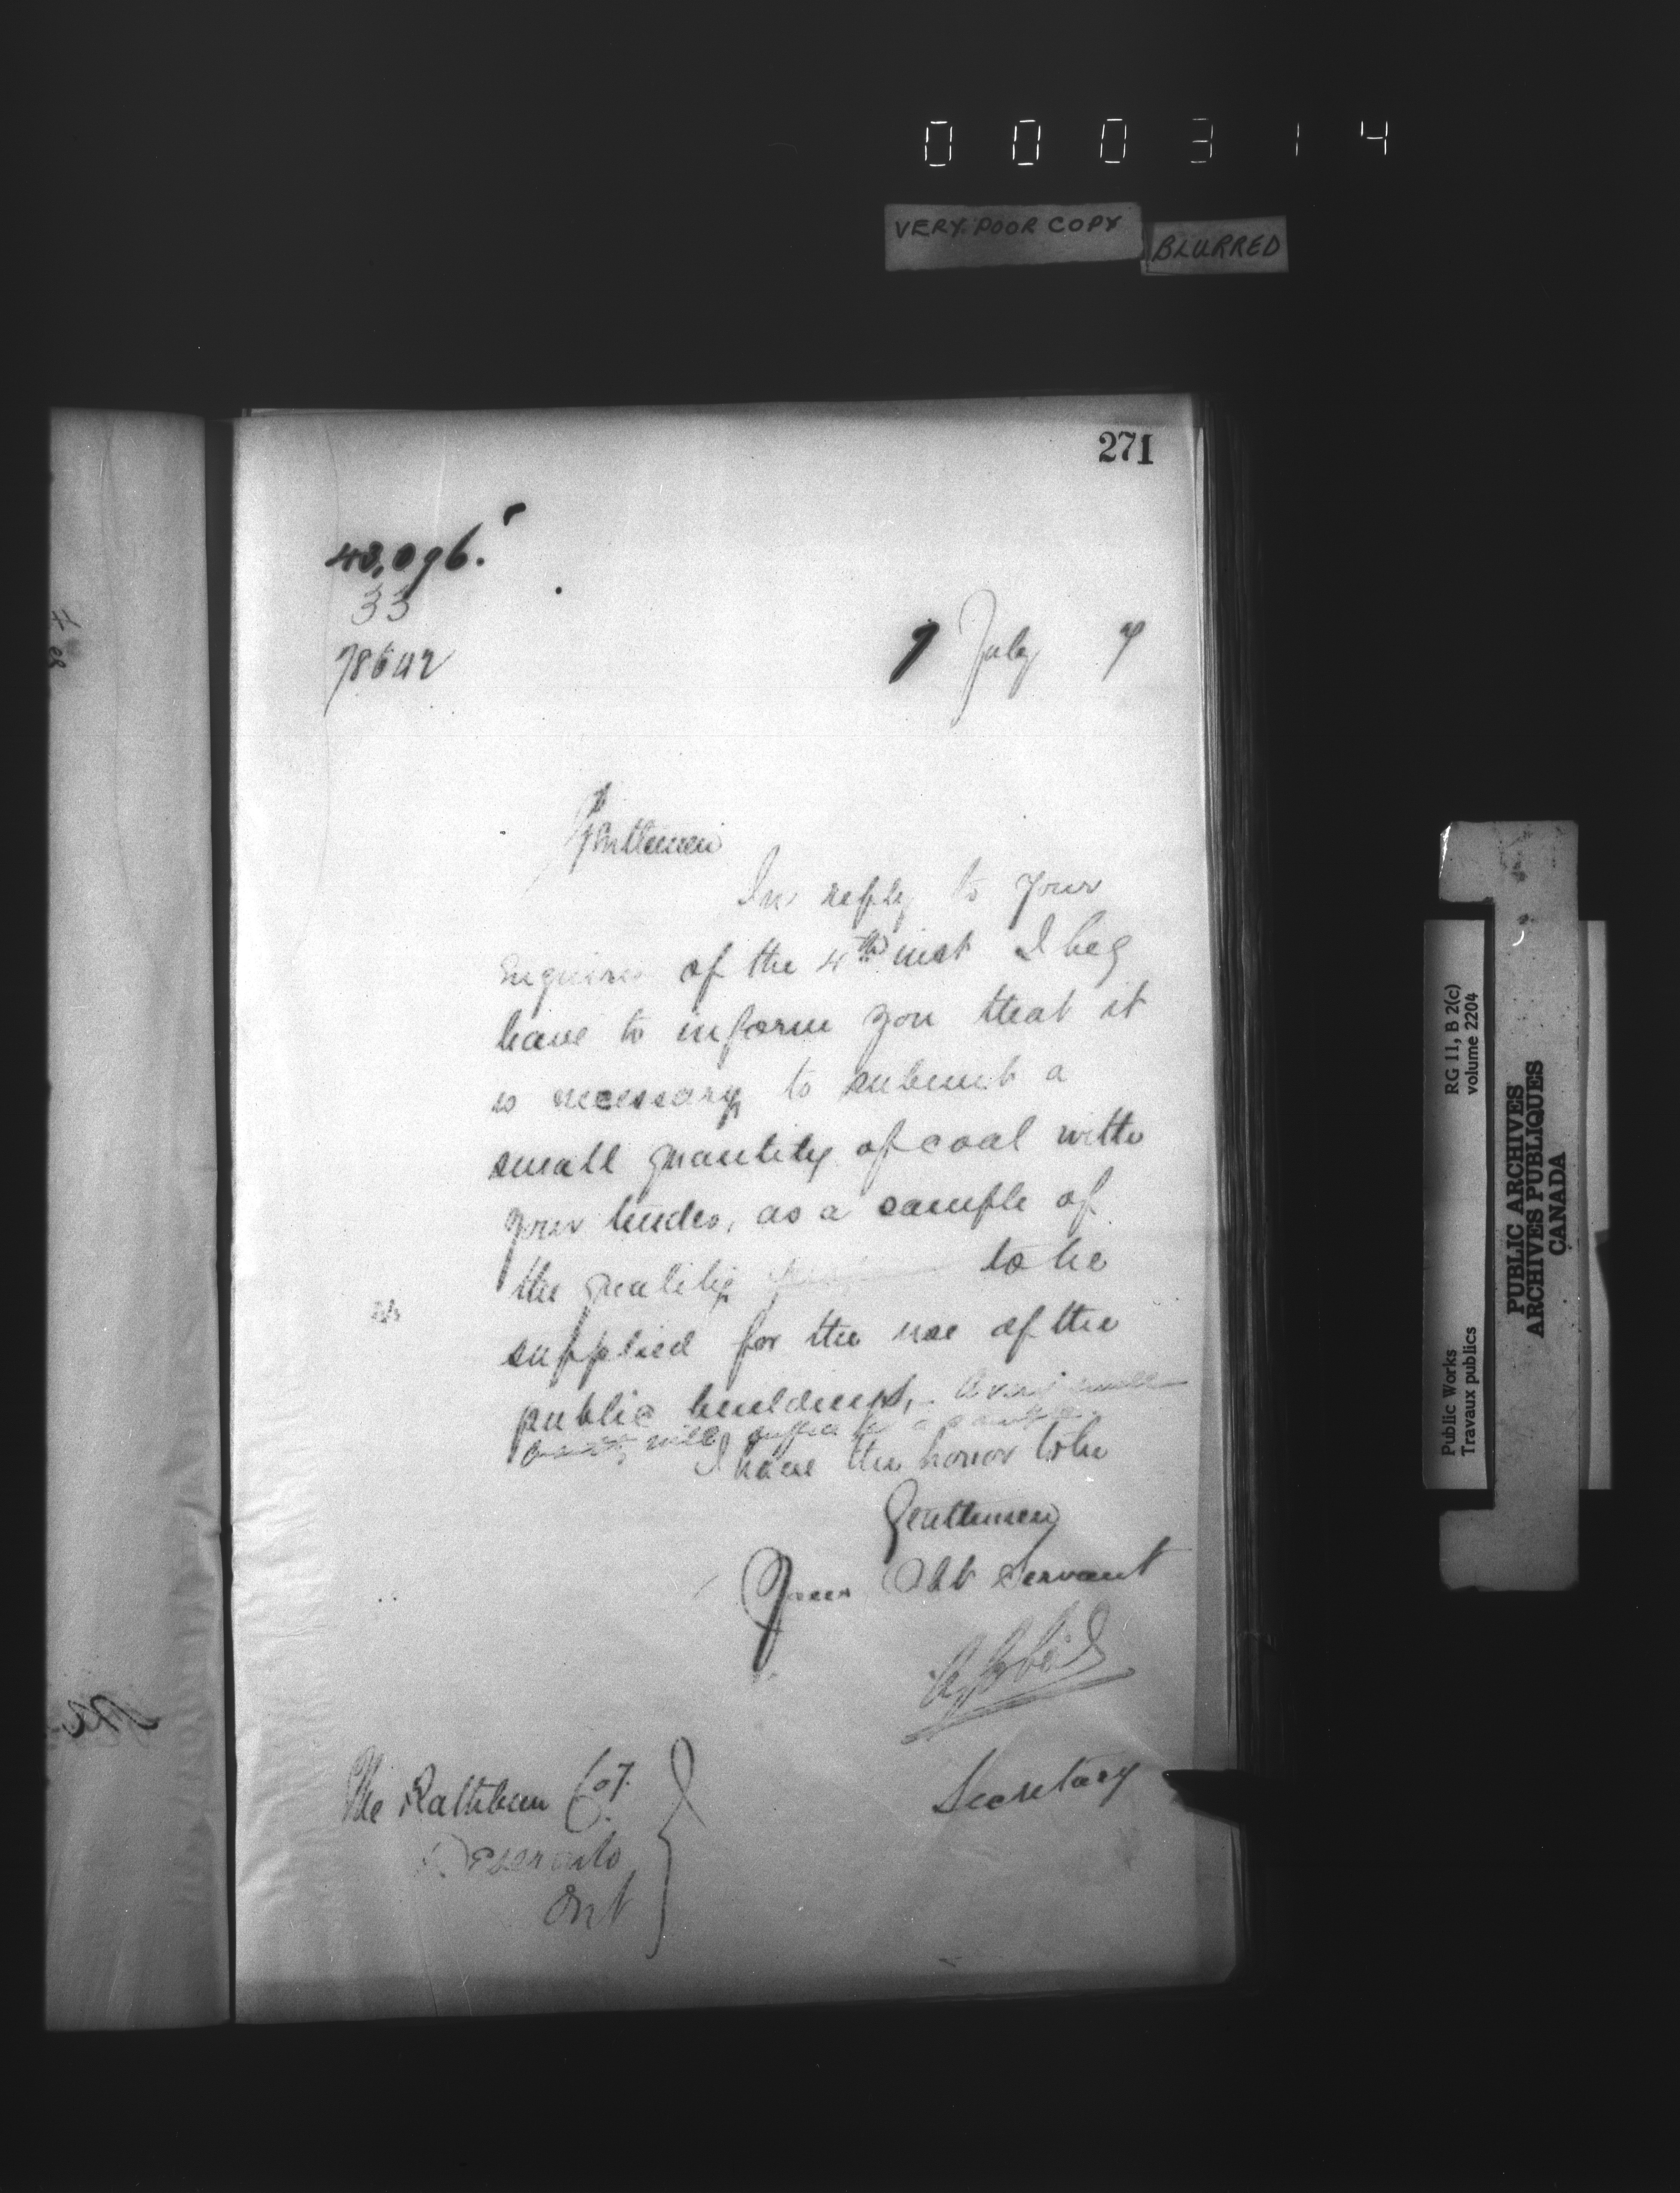 000314
VERY POOR COPY
BLURRED
271
40,096.
33
78642
7 July 7
Gentlemen
In reply to your
Enquiries of the 4th inst I beg
leave to inform you that it
is necessary to submit a
small quantity of coal with
your tender, as a sample of
the quality to be
supplied for the use of the
public buildings, - A very small
quantity will suffice as a sample.
I have the honor to be
Gentlemen
Your Obt Servant
Secretary
The Rathbun Coy.
Deseronto
Ont
Public Works
Travaux publics
RG 11, B 2(c)
volume 2204
PUBLIC ARCHIVES
ARCHIVES PUBLIQUES
CANADA